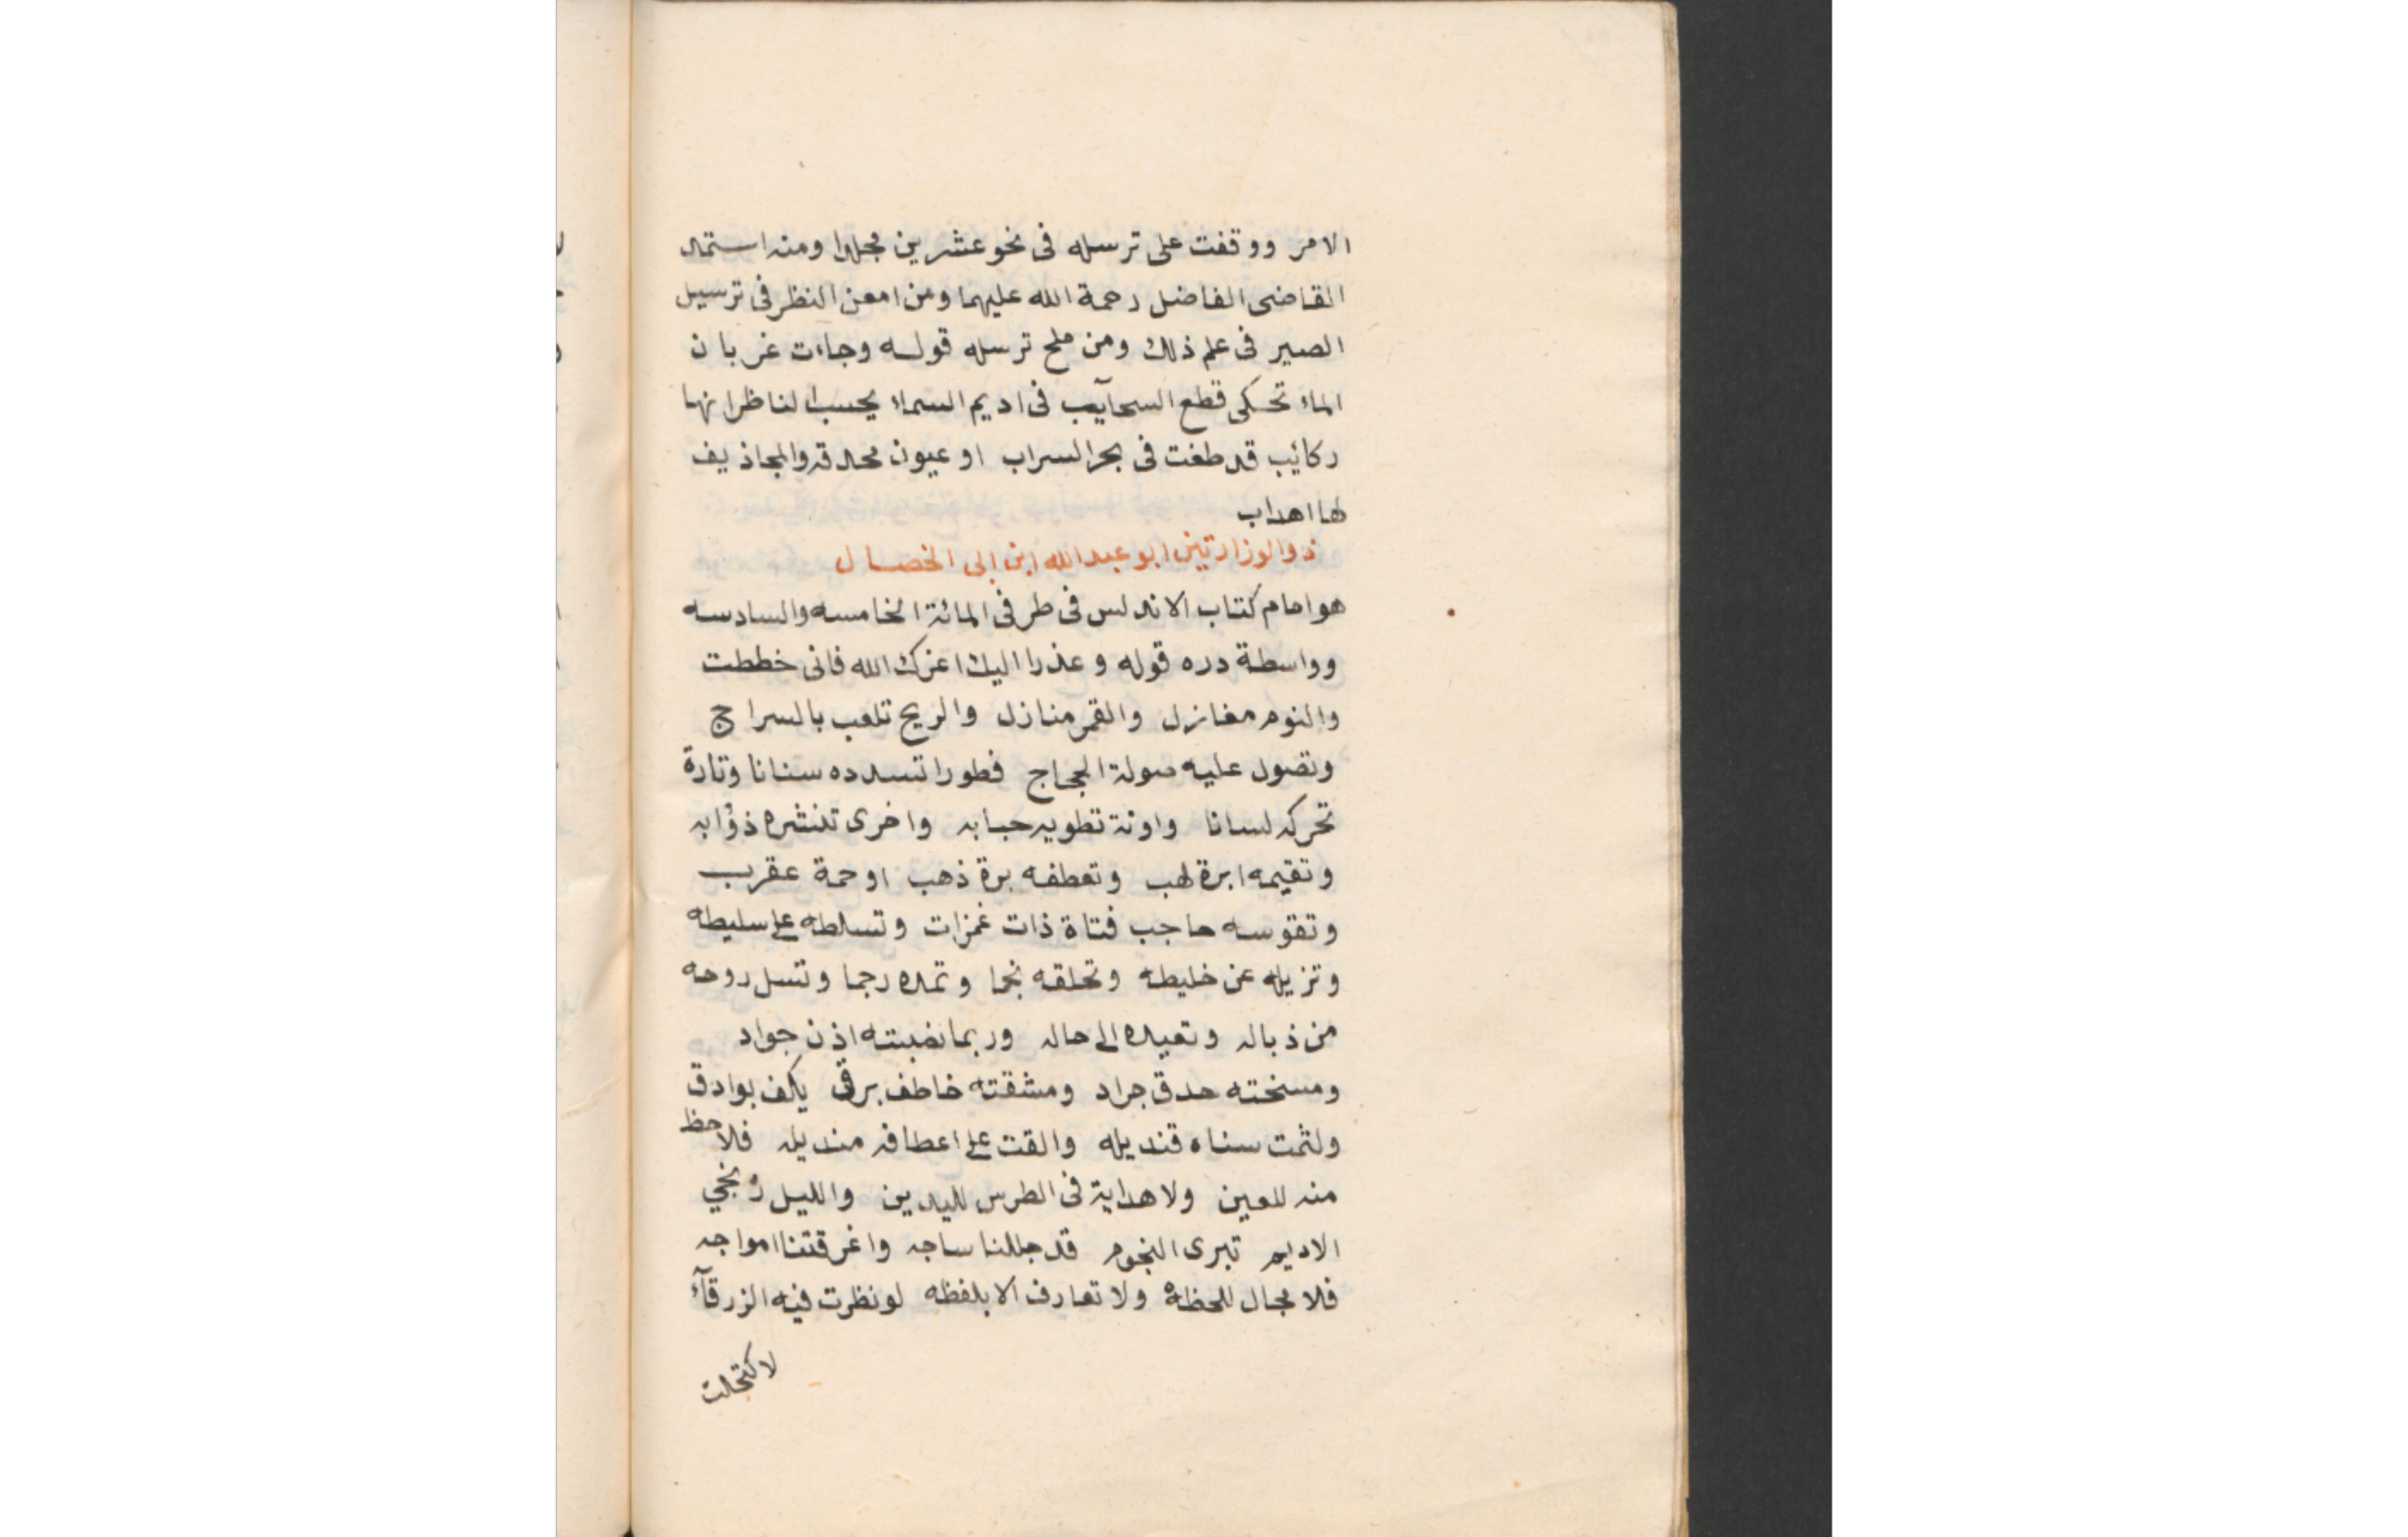 الامر ووقفت على ترسله فى نحو عشرين مجلدا ومنه استمد
القاضى الفاضل رحمة الله عليهما ومن امعن النظر فى ترسيل
الصير فى علم ذلك ومن ملح ترسله قوله وجاءت غربان
الماء تحكى قطع السحآيب فى اديم السماء يحسب الناظر انها
ركائب قد طفت فى بحر السراب او عيون محدقه والمجاذيف
لها اهداب
ذوالوزارتين ابو عبد الله ابن ابى الخصال
هو امام كتاب الاندلس فى طرفى المائة الخامسه والسادسه
وواسطة دره قوله وعذرا اليك اعزك الله فانى خططت
والنوم مغازل والقمر منازل والريح تلعب بالسراج
وتصول عليه صولة الحجاج فطورا تسدده سنانا وتارة
تحركه لسانا واونة تطويه حبابه واخرى تنشره ذؤابه
وتقيمه ابرة لهب وتعطفه برة ذهب او حمة عقرب
وتقوسه حاجب فتاة ذات غمزات وتسلطه على سليطه
وتزيله عن خليطه وتحلقه نجما وتمده رجما وتسل روحه
من ذباله وتعيده الى حاله وربما نصبته اذن جواد
ومسخته حدق جراد ومشقته خاطف برق يكف بوادق
ولثمت سناه قنديله والقت على اعطافه منديله فلاحظ
منه للعين ولا هداية فى الطرس لليدين والليل زنجي
الاديم تبرى النجوم قد جللنا ساجه واغرقتنا امواجه
فلا مجال للحظة ولا تعارف الا بلفظه لو نظرت فيه الزرقآء
لاكتحلت